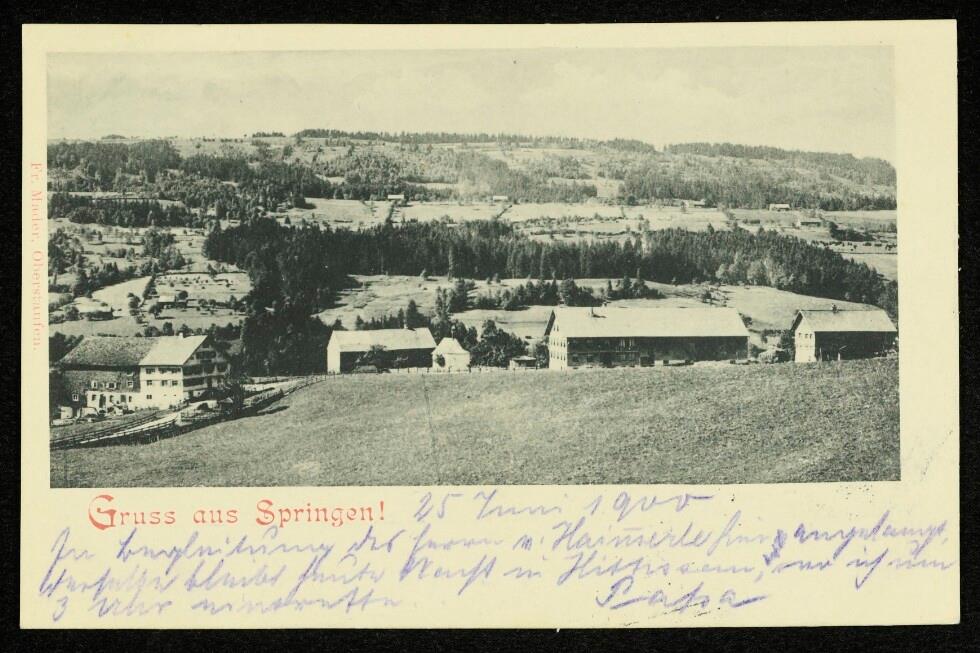 Fr. Mader, Oberstaufen.
Gruss aus Springen! 25 Juni 1900
In Begleitung des Herrn v. Haimerle hier angelangt,
bleibt heute Nacht in Hittisau, wo ich um
3 Uhr eintreffe Papa